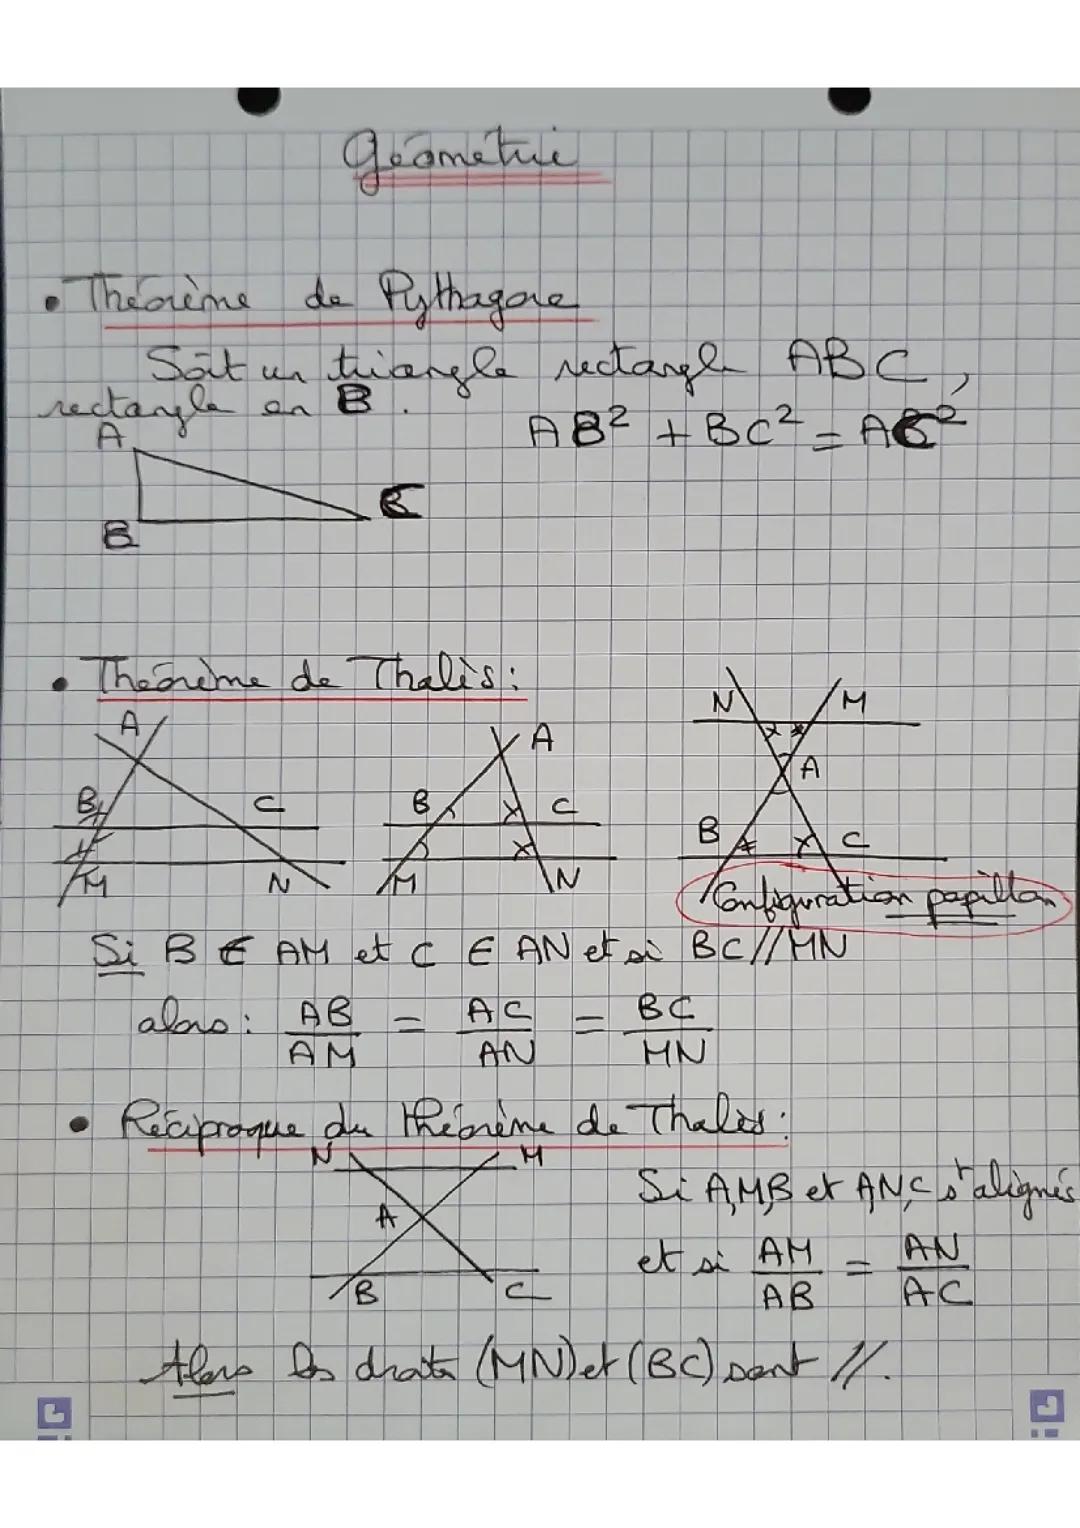 Géométrie
• Théorème de Pythagore
Soit un triangle rectangle ABC,
rectangle en B.
AB² + BC² = AC²
A
B
C
• Théorème de Thalès :
A
B
C
M
N
A
B
C
M
N
N
M
A
B
C
Configuration papillon
Si B ∈ AM et C ∈ AN et si BC//MN
alors : AB/AM = AC/AN = BC/MN
• Réciproque du théorème de Thalès :
N
M
A
B
C
Si A,M,B et A,N,C st alignés
et si AM/AB = AN/AC
Alors les droites (MN) et (BC) sont //.